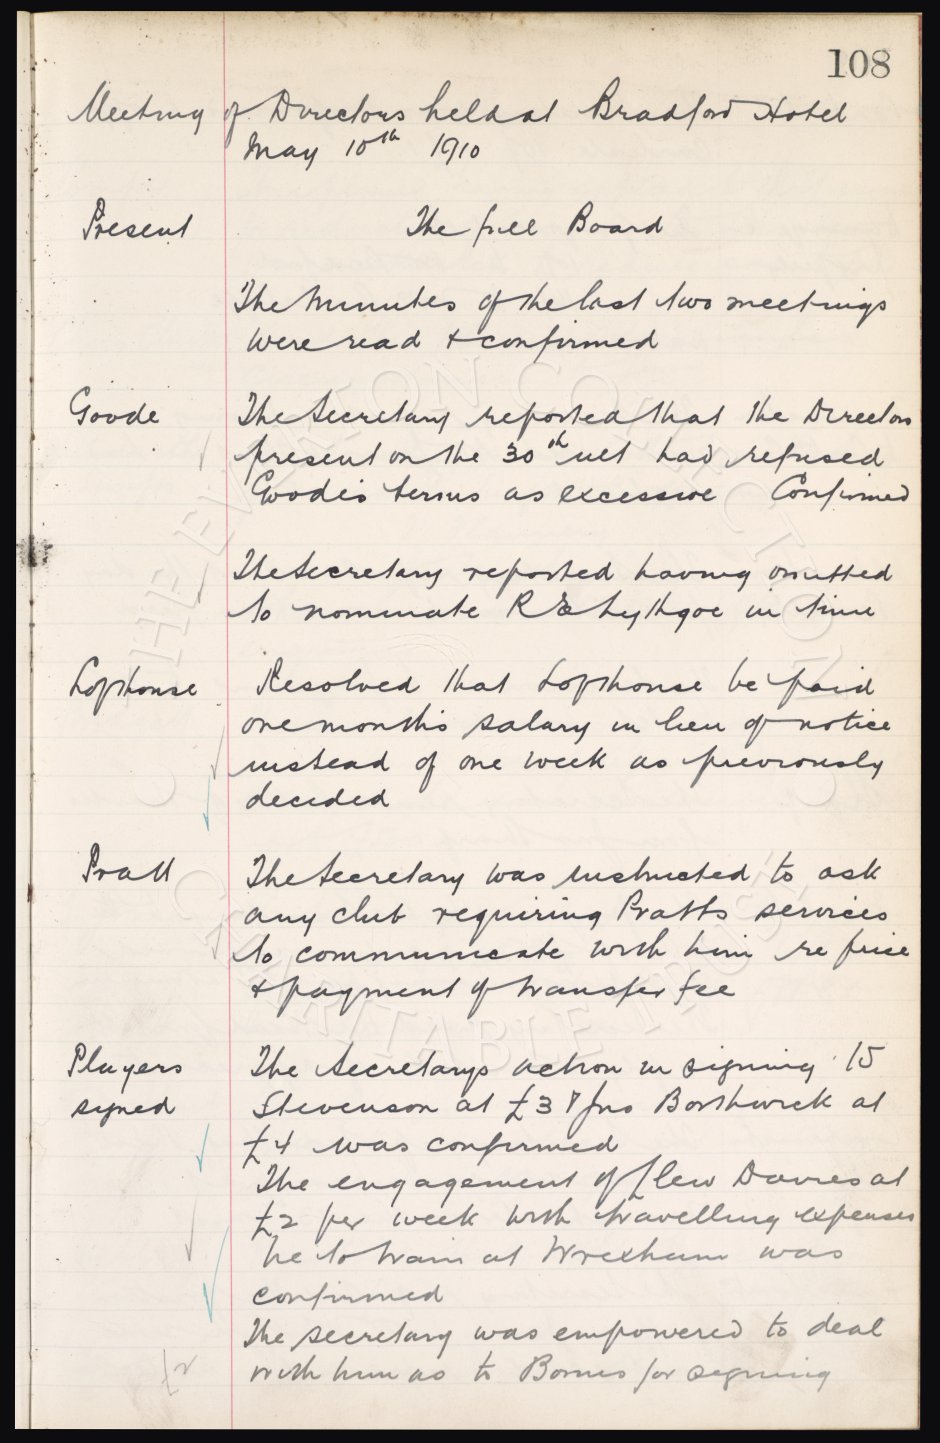 108
Meeting of Directors held at Bradford Hotel
May 10th 1910
Present The full Board
The Minutes of the last two meetings
were read & confirmed
Goode The Secretary reported that the Directors
present on the 30th ult had refused
Goode's terms as excessive Confirmed
The Secretary reported having omitted
to nominate R E Lythgoe in time
Lofthouse Resolved that Lofthouse be paid
one months salary in lieu of notice
instead of one week as previously
decided
Pratt The Secretary was instructed to ask
any club requiring Pratts services
to communicate with him re price
& payment of transfer fee
Players The Secretarys action in signing 15
signed Stevenson at £3 & Jno Borthwick at
£4 was confirmed
The engagement of Llew Davies at
£2 per week with travelling expenses
he to train at Wrexham was
confirmed
The secretary was empowered to deal
with him as to Bonus for signing
THE EVERTON COLLECTION
CHARITABLE TRUST